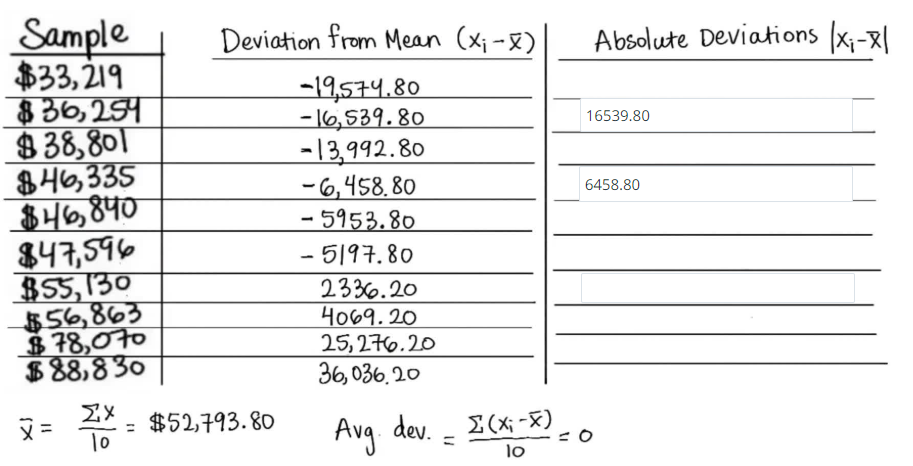 Sample Deviation from Mean (xᵢ-x̄) Absolute Deviations |xᵢ-x̄|
$33,219 -19,574.80
$36,254 -16,539.80 16539.80
$38,801 -13,992.80
$46,335 -6,458.80 6458.80
$46,840 -5953.80
$47,596 -5197.80
$55,130 2336.20
$56,863 4069.20
$78,070 25,276.20
$88,830 36,036.20
x̄ = Σx/10 = $52,793.80 Avg. dev. = Σ(xᵢ-x̄)/10 = 0